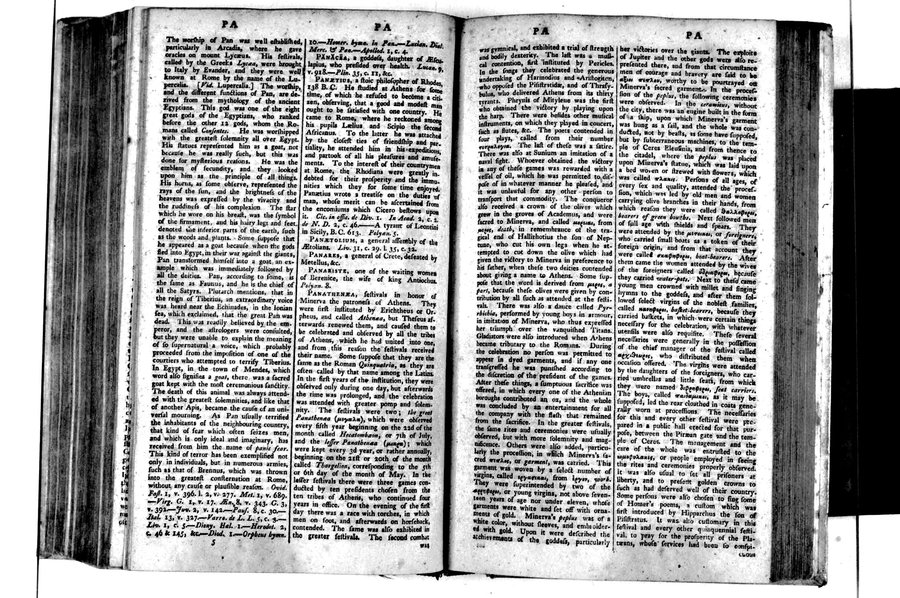 PA
PA
The worship of Pan was well established,
particularly in Arcadia, where he gave
oracles on mount Lycæus. His festivals,
called by the Greeks Lycæa, were brought
to Italy by Evander, and they were well
known at Rome by the name of the Lu-
percalia. [Vid. Lupercalia.] The worship,
and the different functions of Pan, are de-
rived from the mythology of the ancient
Egyptians. This god was one of the eight
great gods of the Egyptians, who ranked
before the other 12 gods, whom the Ro-
mans called Consentes. He was worshipped
with the greatest solemnity all over Egypt.
His statues represented him as a goat, not
because he was really such, but this was
done for mysterious reasons. He was the
emblem of fecundity, and they looked
upon him as the principle of all things.
His horns, as some observe, represented the
rays of the sun, and the brightness of the
heavens was expressed by the vivacity and
the ruddiness of his complexion. The star
which he wore on his breast, was the symbol
of the firmament, and his hairy legs and feet
denoted the inferior parts of the earth, such
as the woods and plants. Some suppose that
he appeared as a goat because when the gods
fled into Egypt, in their war against the giants,
Pan transformed himself into a goat, an ex-
ample which was immediately followed by
all the deities. Pan, according to some, is
the same as Faunus, and he is the chief of
all the Satyrs. Plutarch mentions, that in
the reign of Tiberius, an extraordinary voice
was heard near the Echinades, in the Ionian
sea, which exclaimed, that the great Pan was
dead. This was readily believed by the em-
peror, and the astrologers were consulted,
but they were unable to explain the meaning
of so supernatural a voice, which probably
proceeded from the imposition of one of the
courtiers who attempted to terrify Tiberius.
In Egypt, in the town of Mendes, which
word also signifies a goat, there was a sacred
goat kept with the most ceremonious sanctity.
The death of this animal was always attend-
ed with the greatest solemnities, and like that
of another Apis, became the cause of an uni-
versal mourning. As Pan usually terrified
the inhabitants of the neighbouring country,
that kind of fear which often seizes men,
and which is only ideal and imaginary, has
received from him the name of panic fear.
This kind of terror has been exemplified not
only in individuals, but in numerous armies,
such as that of Brennus, which was thrown
into the greatest consternation at Rome,
without any cause or plausible reason. Ovid.
Fast. 1, v. 396. l. 2, v. 277. Met. 1, v. 689.
—Virg. G. 1, v. 17. Æn. 8, v. 343. G. 3,
v. 392.—Juv. 2, v. 142.—Paus. 8, c. 30.—
Ital. 13, v. 327.—Varro. de L. L. 5, c. 3.—
Liv. 1, c. 5.—Dionys. Hal. 1.—Herodot. 2,
c. 46 & 145, &c.—Diod. 1.—Orpheus hymn.
10.—Homer. hymn. in Pan.—Lucian. Dial.
Merc. & Pan.—Apollod. 1, c. 4.
PANACEA, a goddess, daughter of Æscu-
lapius, who presided over health. Lucan. 9,
v. 918.—Plin. 35, c. 11, &c.
PANÆTIUS, a stoic philosopher of Rhodes,
138 B.C. He studied at Athens for some
time, of which he refused to become a citi-
zen, observing, that a good and modest man
ought to be satisfied with one country. He
came to Rome, where he reckoned among
his pupils Lælius and Scipio the second
Africanus. To the latter he was attached
by the closest ties of friendship and par-
tiality, he attended him in his expeditions,
and partook of all his pleasures and amuse-
ments. To the interest of their countryman
at Rome, the Rhodians were greatly in-
debted for their prosperity and the immu-
nities which they for some time enjoyed.
Panætius wrote a treatise on the duties of
man, whose merit can be ascertained from
the encomiums which Cicero bestows upon
it. Cic. in offic. de Div. 1. In Acad. 2, c. 2.
de N. D. 2, c. 46.—A tyrant of Leontini
in Sicily, B.C. 613. Polyæn. 5.
PANÆTOLIUM, a general assembly of the
Ætolians. Liv. 31, c. 29. l. 35, c. 32.
PANARES, a general of Crete, defeated by
Metellus, &c.
PANARISTE, one of the waiting women
of Berenice, the wife of king Antiochus.
Polyæn. 8.
PANATHENÆA, festivals in honor of
Minerva the patroness of Athens. They
were first instituted by Erichtheus or Or-
pheus, and called Athenæa, but Theseus af-
terwards renewed them, and caused them to
be celebrated and observed by all the tribes
of Athens, which he had united into one,
and from this reason the festivals received
their name. Some suppose that they are the
same as the Roman Quinquatria, as they are
often called by that name among the Latins.
In the first years of the institution, they were
observed only during one day, but afterwards
the time was prolonged, and the celebration
was attended with greater pomp and solem-
nity. The festivals were two; the great
Panathenæa (μεγαλα), which were observed
every fifth year beginning on the 22d of the
month called Hecatombæon, or 7th of July,
and the lesser Panathenæa (μικρα); which
were kept every 3d year, or rather annually,
beginning on the 21st or 20th of the month
called Thargelion, corresponding to the 5th
or 6th day of the month of May. In the
lesser festivals there were three games con-
ducted by ten presidents chosen from the
ten tribes of Athens, who continued four
years in office. On the evening of the first
day there was a race with torches, in which
men on foot, and afterwards on horseback,
contended. The same was also exhibited in
the greater festivals. The second combat
5
was
PA
PA
was gymnical, and exhibited a trial of strength
and bodily dexterity. The last was a musi-
cal contention, first instituted by Pericles.
In the songs they celebrated the generous
undertaking of Harmodius and Aristogiton,
who opposed the Pisistratidæ, and of Thrasy-
bulus, who delivered Athens from its thirty
tyrants. Phrynis of Mitylene was the first
who obtained the victory by playing upon
the harp. There were besides other musical
instruments, on which they played in concert,
such as flutes, &c. The poets contended in
four plays, called from their number
τετραλογια. The last of these was a satire.
There was also at Sunium an imitation of a
naval fight. Whoever obtained the victory
in any of these games was rewarded with a
vessel of oil, which he was permitted to dis-
pose of in whatever manner he pleased, and
it was unlawful for any other person to
transport that commodity. The conqueror
also received a crown of the olives which
grew in the groves of Academus, and were
sacred to Minerva, and called μορειαι, from
μορος, death, in remembrance of the tra-
gical end of Hallirhotius the son of Nep-
tune, who cut his own legs when he at-
tempted to cut down the olive which had
given the victory to Minerva in preference to
his father, when these two deities contended
about giving a name to Athens. Some sup-
pose that the word is derived from μερος, a
part, because these olives were given by con-
tribution by all such as attended at the festi-
vals. There was also a dance called Pyr-
rhichia, performed by young boys in armour,
in imitation of Minerva, who thus expressed
her triumph over the vanquished Titans.
Gladiators were also introduced when Athens
became tributary to the Romans. During
the celebration no person was permitted to
appear in dyed garments, and if any one
transgressed he was punished according to
the discretion of the president of the games.
After these things, a sumptuous sacrifice was
offered, in which every one of the Athenian
boroughs contributed an ox, and the whole
was concluded by an entertainment for all
the company with the flesh that remained
from the sacrifice. In the greater festivals,
the same rites and ceremonies were usually
observed, but with more solemnity and mag-
nificence. Others were also added, particu-
larly the procession, in which Minerva's sa-
cred πεπλος, or garment, was carried. This
garment was woven by a select number of
virgins, called εργαστικαι, from εργον, work.
They were superintended by two of the
αρρηφοροι, or young virgins, not above seven-
teen years of age nor under eleven, whose
garments were white and set off with orna-
ments of gold. Minerva's peplus was of a
white color, without sleeves, and embroider-
ed with gold. Upon it were described the
achievements of the goddess, particularly
her victories over the giants. The exploits
of Jupiter and the other gods were also re-
presented there, and from that circumstance
men of courage and bravery are said to be
αξιοι πεπλου, worthy to be pourtrayed on
Minerva's sacred garments. In the proces-
sion of the peplus, the following ceremonies
were observed. In the ceramicus, without
the city, there was an engine built in the form
of a ship, upon which Minerva's garment
was hung as a sail, and the whole was con-
ducted, not by beasts, as some have supposed,
but by subterraneous machines, to the tem-
ple of Ceres Eleusinia, and from thence to
the citadel, where the peplus was placed
upon Minerva's statue, which was laid upon
a bed woven or strewed with flowers, which
was called πλακις. Persons of all ages, of
every sex and quality, attended the proces-
sion, which was led by old men and women
carrying olive branches in their hands, from
which reason they were called θαλλοφοροι,
bearers of green boughs. Next followed men
of full age with shields and spears. They
were attended by the μετοικοι, or foreigners,
who carried small boats as a token of their
foreign origin, and from that account they
were called σκαφηφοροι, boat-bearers. After
them came the women attended by the wives
of the foreigners called υδριαφοροι, because
they carried water-pots. Next to these came
young men crowned with millet and singing
hymns to the goddess, and after them fol-
lowed select virgins of the noblest families,
called κανηφοροι, basket-bearers, because they
carried baskets, in which were certain things
necessary for the celebration, with whatever
utensils were also requisite. These several
necessaries were generally in the possession
of the chief manager of the festival called
αρχιθεωρος, who distributed them when
occasion offered. The virgins were attended
by the daughters of the foreigners, who car-
ried umbrellas and little seats, from which
they were named διφρηφοροι, seat carriers.
The boys, called παιδαμικοι, as it may be
supposed, led the rear cloathed in coats gene-
rally worn at processions. The necessaries
for this and every other festival were pre-
pared in a public hall erected for that pur-
pose, between the Piræan gate and the tem-
ple of Ceres. The management and the
care of the whole was entrusted to the
νομοφυλακες, or people employed in seeing
the rites and ceremonies properly observed.
It was also usual to set all prisoners at
liberty, and to present golden crowns to
such as had deserved well of their country.
Some persons were also chosen to sing some
of Homer's poems, a custom which was
first introduced by Hipparchus the son of
Pisistratus. It was also customary in this
festival and every other quinquennial festi-
val, to pray for the prosperity of the Pla-
tæans, whose services had been so conspi-
cuous